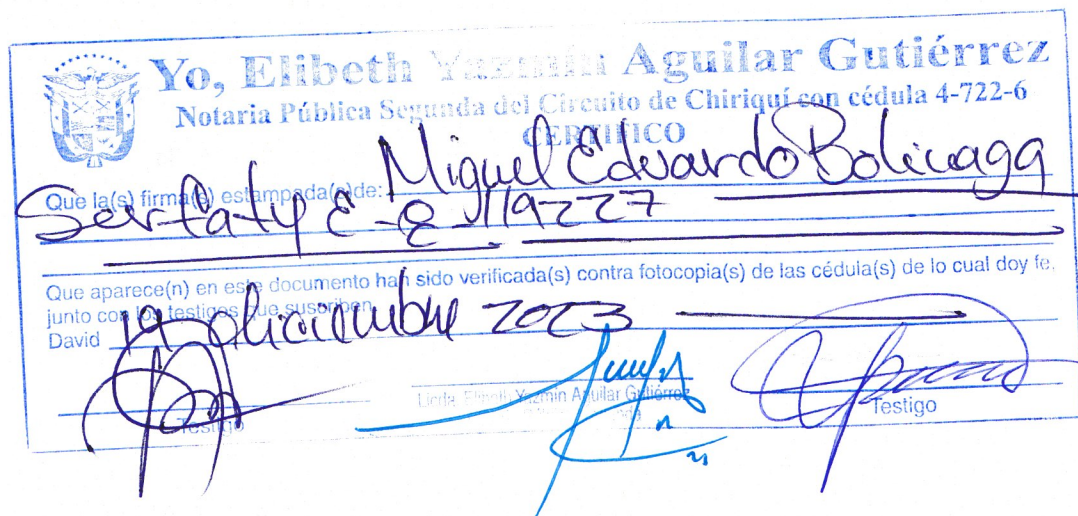 Yo, Elibeth Yazmín Aguilar Gutiérrez
Notaria Pública Segunda del Circuito de Chiriquí con cédula 4-722-6
CERTIFICO
Que la(s) firma(s) estampada(s)de: Miguel Eduardo Bolivagg
Serfaty E-8-119227
Que aparece(n) en este documento han sido verificada(s) contra fotocopia(s) de las cédula(s) de lo cual doy fe,
junto con los testigos que suscriben
David 19 diciembre 2023
Licda. Elibeth Yazmín Aguilar Gutiérrez
Testigo Testigo